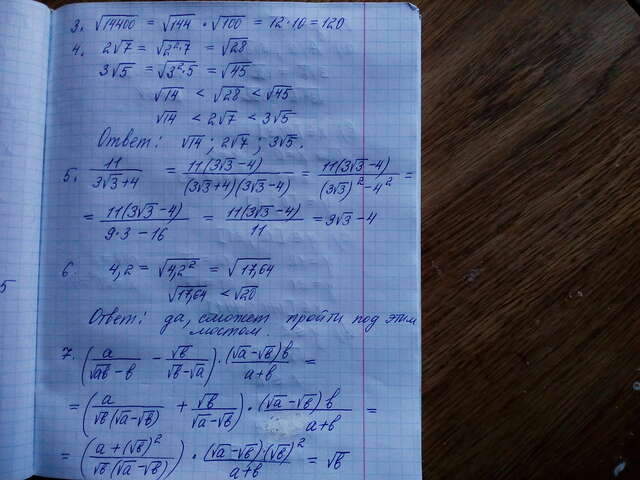 3. √14400 = √144 · √100 = 12·10 = 120
4. 2√7 = √(2²·7) = √28
3√5 = √(3²·5) = √45
√14 < √28 < √45
√14 < 2√7 < 3√5
Ответ: √14; 2√7; 3√5.
5. 11/(3√3+4) = 11(3√3-4)/((3√3+4)(3√3-4)) = 11(3√3-4)/((3√3)²-4²) =
= 11(3√3-4)/(9·3-16) = 11(3√3-4)/11 = 3√3-4
6. 4,2 = √(4,2²) = √17,64
√17,64 < √20
Ответ: да, сможет пройти под этим
мостом.
7. (a/(√ab-b) - √b/(√b-√a)) · (√a-√b)b/(a+b) =
= (a/(√b(√a-√b)) + √b/(√a-√b)) · (√a-√b)b/(a+b) =
= ((a+(√b)²)/(√b(√a-√b))) · (√a-√b)(√b)²/(a+b) = √b
5